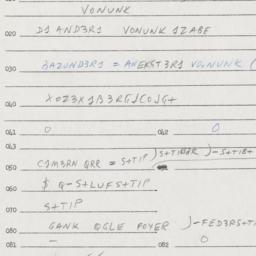 VONUNK
020 D1 AND3R1 VONUNK 1ZABE
030 3AZUND3R1 = ANEKST3R1 VONUNK (
040 X0Z3X1B3RGJC0JG+
041 0 042 0
043
050 C1M3RN QRR = S+TIP
060 $ Q-S+LUFS+TIP
070 S+TIP
080 GANK QGLE FOYER )-FED3RS+T
081 — 082 0